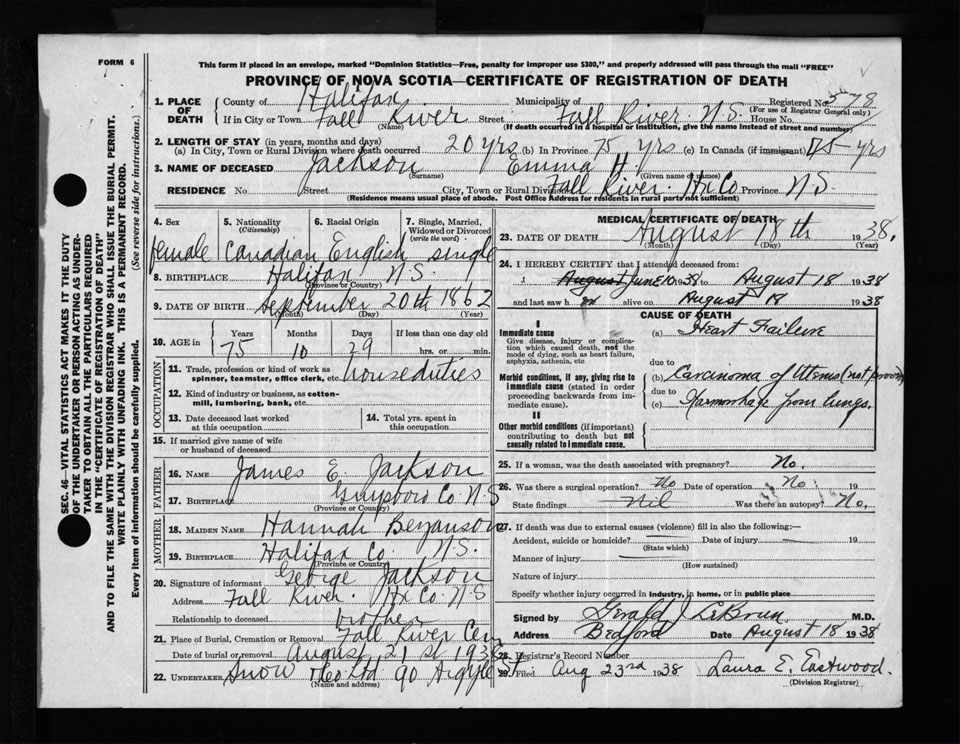 FORM 6
This form if placed in an envelope, marked "Dominion Statistics—Free, penalty for improper use $300," and properly addressed will pass through the mail "FREE"
PROVINCE OF NOVA SCOTIA—CERTIFICATE OF REGISTRATION OF DEATH
1. PLACE OF DEATH County of Halifax Municipality of Registered No.
(For use of Registrar General only)
If in City or Town Fall River Street Fall River. N.S. House No.
(Name) (If death occurred in a hospital or institution, give the name instead of street and number)
2. LENGTH OF STAY (in years, months and days)
(a) In City, Town or Rural Division where death occurred 20 yrs (b) In Province 75 yrs (c) In Canada (if immigrant) 75 yrs
3. NAME OF DECEASED Jackson Emma H.
(Surname) (Given name or names)
RESIDENCE No. Street City, Town or Rural Division Fall River. Hx Co. Province N.S.
(Residence means usual place of abode. Post Office Address for residents in rural parts not sufficient)
4. Sex 5. Nationality (Citizenship) 6. Racial Origin 7. Single, Married, Widowed or Divorced (write the word)
female Canadian English single
8. BIRTHPLACE Halifax N.S.
(Province or Country)
9. DATE OF BIRTH September 20th 1862
(Month) (Day) (Year)
10. AGE in Years Months Days If less than one day old
75 10 29 hrs. or min.
OCCUPATION
11. Trade, profession or kind of work as spinner, teamster, office clerk, etc. house duties
12. Kind of industry or business, as cotton-mill, lumbering, bank, etc.
13. Date deceased last worked at this occupation 14. Total yrs. spent in this occupation
15. If married give name of wife or husband of deceased
FATHER
16. NAME James E. Jackson
17. BIRTHPLACE Co. N.S
(Province or Country)
MOTHER
18. MAIDEN NAME Hannah Bezanson
19. BIRTHPLACE Halifax Co. N.S.
(Province or Country)
20. Signature of informant George Jackson
Address Fall River. Hx Co. N.S
Relationship to deceased brother
21. Place of Burial, Cremation or Removal Fall River Cem
Date of burial or removal August 21st 1938
22. UNDERTAKER Snow & Co Ltd 90 Argyle St
(Name and address)
MEDICAL CERTIFICATE OF DEATH
23. DATE OF DEATH August 18th 1938,
(Month) (Day) (Year)
24. I HEREBY CERTIFY that I attended deceased from:
August June 10 1938 to August 18 1938
and last saw her alive on August 1938
CAUSE OF DEATH
I
Immediate cause (a) Heart Failure
Give disease, injury or complication which caused death, not the mode of dying, such as heart failure, asphyxia, asthenia, etc.
due to
Morbid conditions, if any, giving rise to immediate cause (stated in order proceeding backwards from immediate cause). (b) Carcinoma of Uterus (not proven)
due to
(c) Haemorrhage from lungs.
II
Other morbid conditions (if important) contributing to death but not causally related to immediate cause.
25. If a woman, was the death associated with pregnancy? No.
26. Was there a surgical operation? No Date of operation No 19
State findings Nil Was there an autopsy? No.
27. If death was due to external causes (violence) fill in also the following:—
Accident, suicide or homicide? Date of injury 19
(State which)
Manner of injury
(How sustained)
Nature of injury
Specify whether injury occurred in industry, in home, or in public place
Signed by Gerald J LeBrun M.D.
Address Bedford Date August 18 1938
28. Registrar's Record Number
29. Filed Aug 23rd 1938 Laura E. Eastwood.
(Division Registrar)
SEC. 46—VITAL STATISTICS ACT MAKES IT THE DUTY
OF THE UNDERTAKER OR PERSON ACTING AS UNDERTAKER TO OBTAIN ALL THE PARTICULARS REQUIRED
IN THE "CERTIFICATE OF REGISTRATION OF DEATH"
AND TO FILE THE SAME WITH THE DIVISION REGISTRAR WHO SHALL ISSUE THE BURIAL PERMIT.
WRITE PLAINLY WITH UNFADING INK. THIS IS A PERMANENT RECORD.
Every item of information should be carefully supplied. (See reverse side for instructions.)